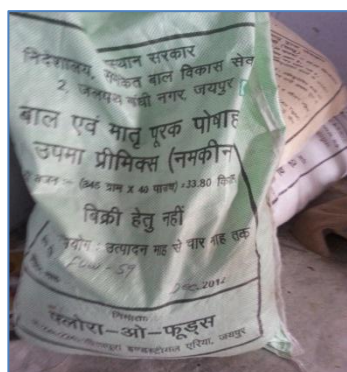 स्थान सरकार
निदेशालय, समेकित बाल विकास सेवा
2, जलपथ गांधी नगर, जयपुर
बाल एवं मातृ पूरक पोषाह
उपमा प्रीमिक्स (नमकीन)
वजन :- (845 ग्राम X 40 पाउच) =33.80 किग्रा
बिक्री हेतु नहीं
उपयोग : उत्पादन माह से चार माह तक
Dec. 2012
निर्माता
फ्लोरा-ओ-फूड्स
इण्डस्ट्रीयल एरिया, जयपुर